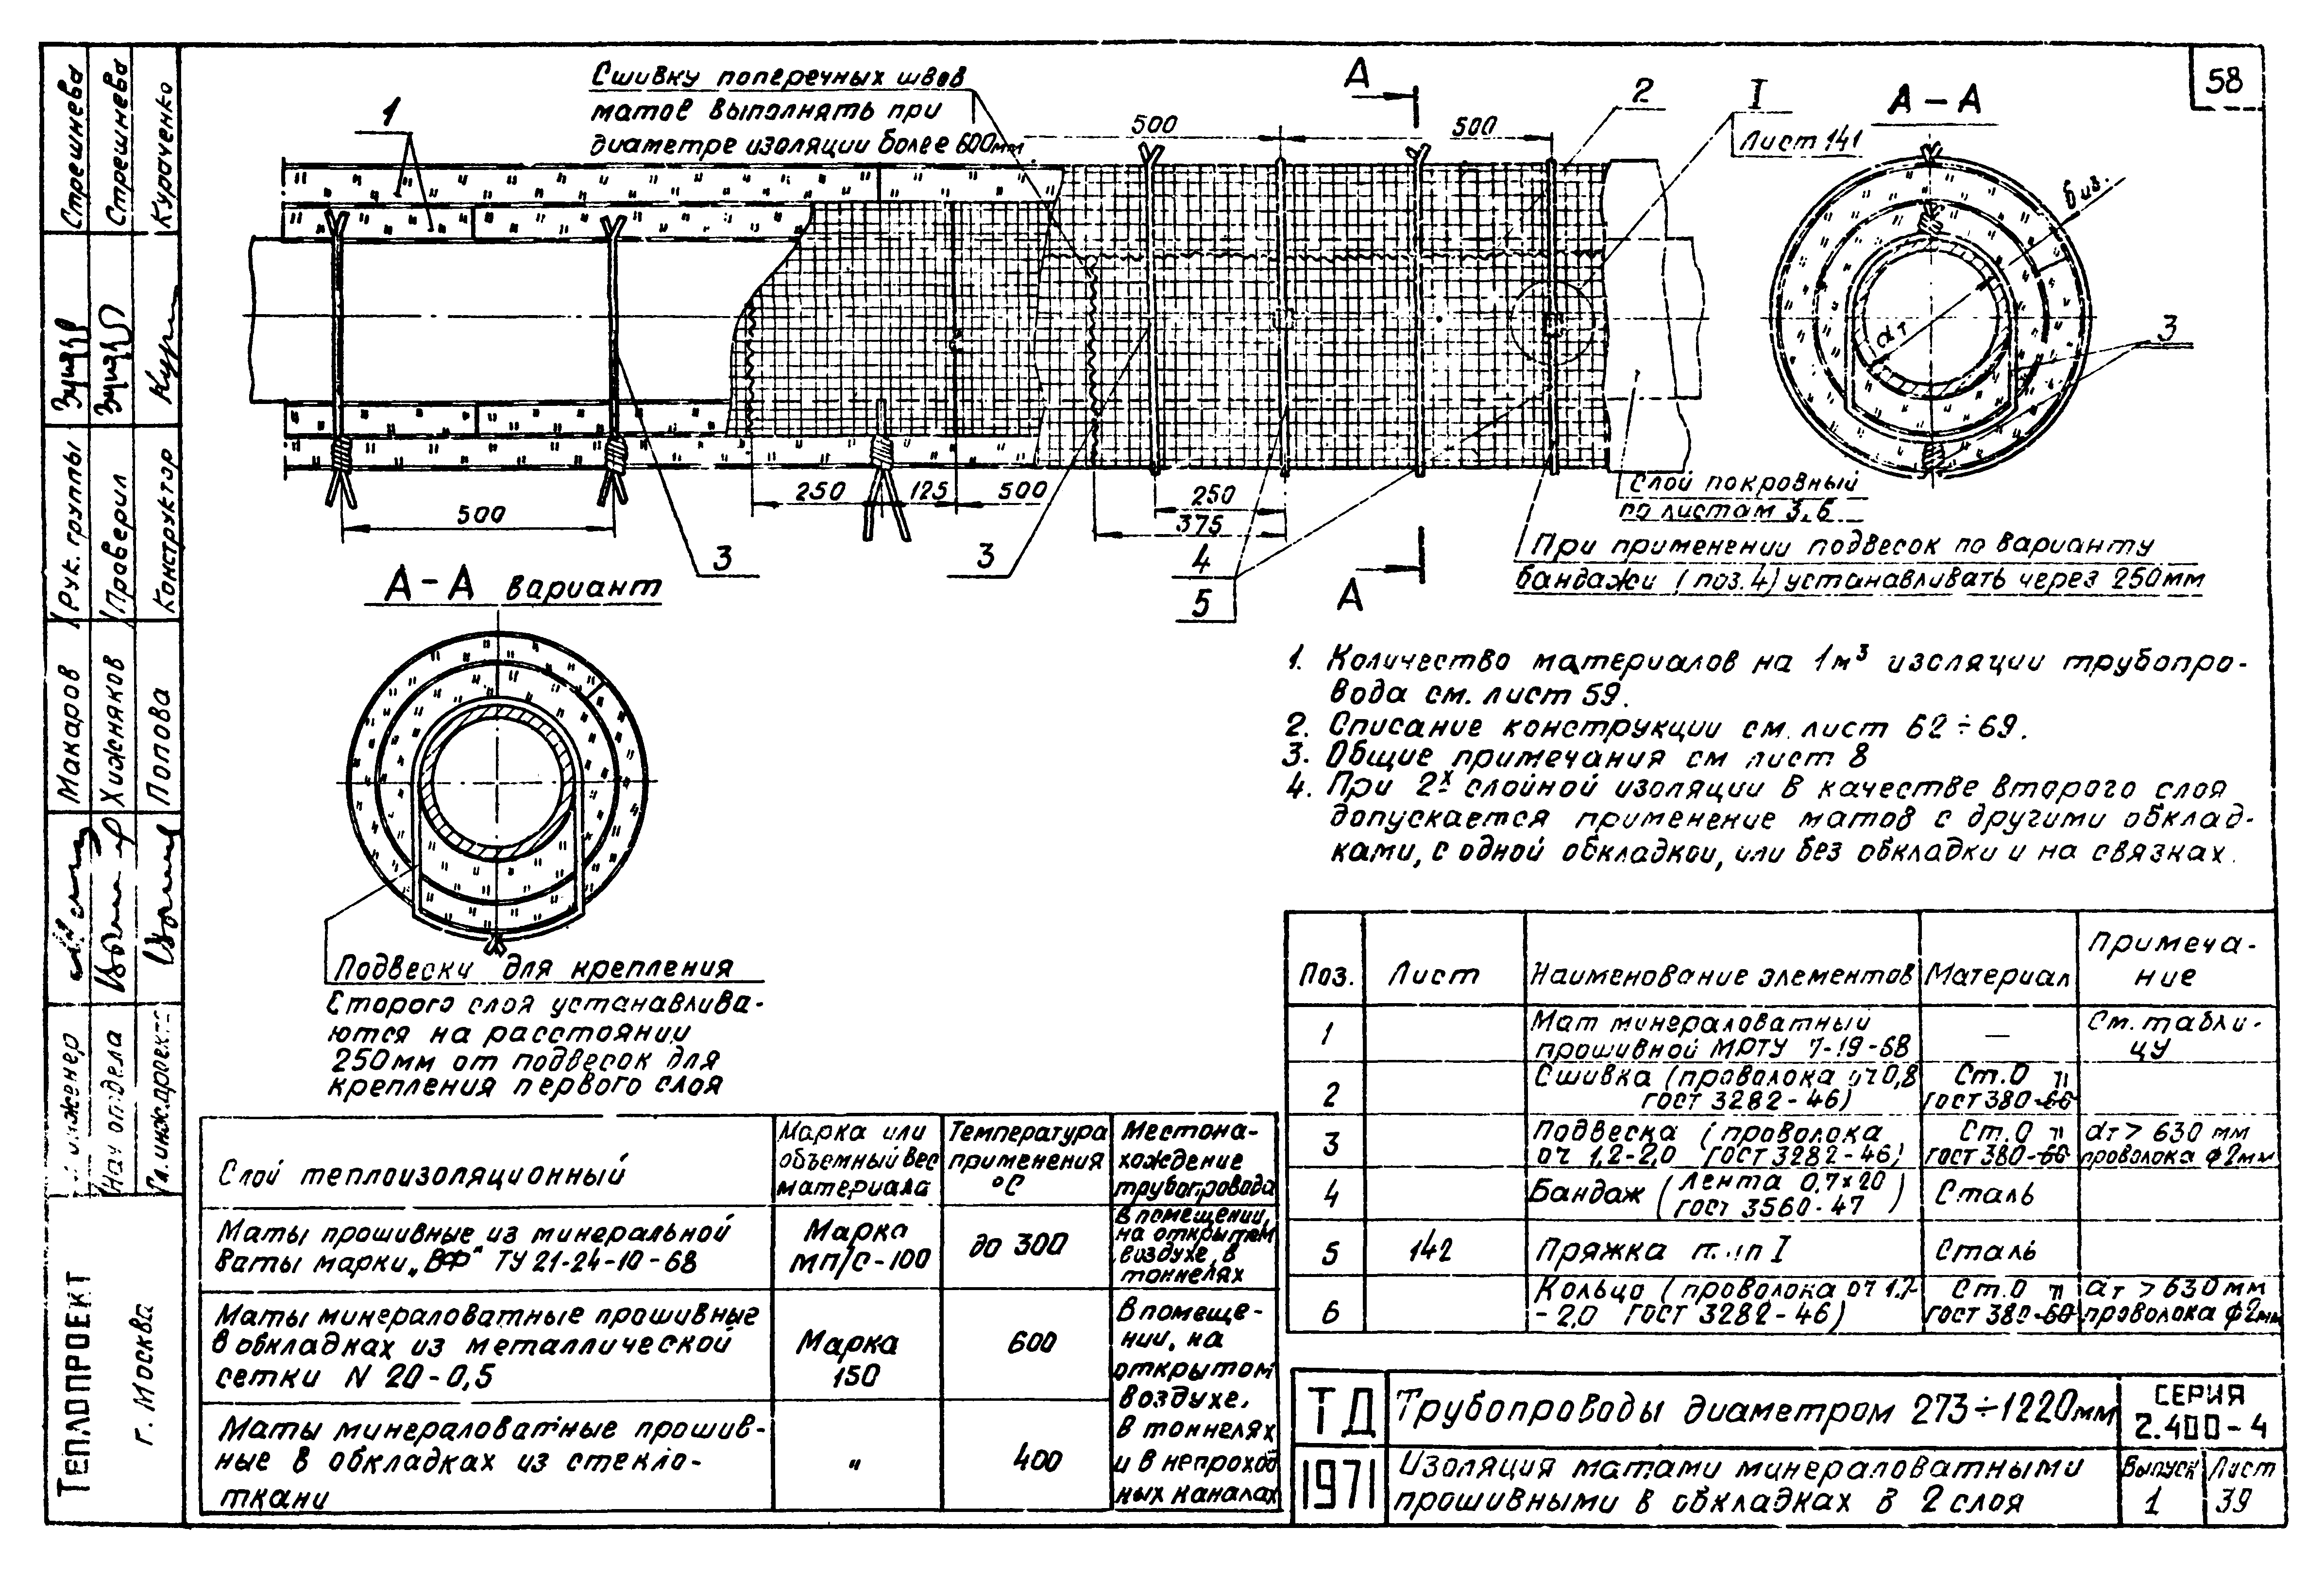 58
Сшивку поперечных швов
матов выполнять при
диаметре изоляции более 600мм
1
500
500
А
2
I
Лист 141
А – А
биз.
dт
3
250
125
500
250
375
500
3
3
4
5
А
Слой покровный
по листам 3,6
При применении подвесок по варианту
бандажи (поз.4) устанавливать через 250мм
А – А вариант
Подвески для крепления
второго слоя устанавлива-
ются на расстоянии
250мм от подвесок для
крепления первого слоя
1. Количество материалов на 1м³ изоляции трубопро-
вода см. лист 59.
2. Описание конструкции см. лист 62÷69.
3. Общие примечания см лист 8
4. При 2х слойной изоляции в качестве второго слоя
допускается применение матов с другими обклад-
ками, с одной обкладкой, или без обкладки и на связках.
Поз. Лист Наименование элементов Материал Примеча-
ние
1 Мат минераловатный
прошивной МРТУ 7-19-68 — См. табли-
цу
2 Сшивка (проволока от 0,8
ГОСТ 3282-46) Ст.0
ГОСТ 380-60
3 Подвеска (проволока
от 1,2-2,0 ГОСТ 3282-46) Ст.0
ГОСТ 380-60 dт > 630 мм
проволока ф2мм
4 Бандаж (лента 0,7×20
ГОСТ 3560-47) Сталь
5 142 Пряжка тип I Сталь
6 Кольцо (проволока от 1,2-
- 2,0 ГОСТ 3282-46) Ст.0
ГОСТ 380-60 dт > 630 мм
проволока ф2мм
Слой теплоизоляционный Марка или
объемный вес
материала Температура
применения
°С Местона-
хождение
трубопровода
Маты прошивные из минеральной
ваты марки „ВФ" ТУ 21-24-10-68 Марка
МП/С-100 до 300 в помещении,
на открытом
воздухе, в
тоннелях
Маты минераловатные прошивные
в обкладках из металлической
сетки N 20-0,5 Марка
150 600 В помеще-
нии, на
открытом
воздухе,
в тоннелях
и в непроход
ных каналах
Маты минераловатные прошив-
ные в обкладках из стекло-
ткани " 400
ТД
1971
Трубопроводы диаметром 273÷1220мм
Изоляция матами минераловатными
прошивными в обкладках в 2 слоя
СЕРИЯ
2.400-4
Выпуск
1
Лист
39
Стрешнева
Стрешнева
Куроченко
Рук. группы
Проверил
Конструктор
Макаров
Хижняков
Попова
инженер
Нач отдела
Гл.инж.проекта
ТЕПЛОПРОЕКТ
г. Москва